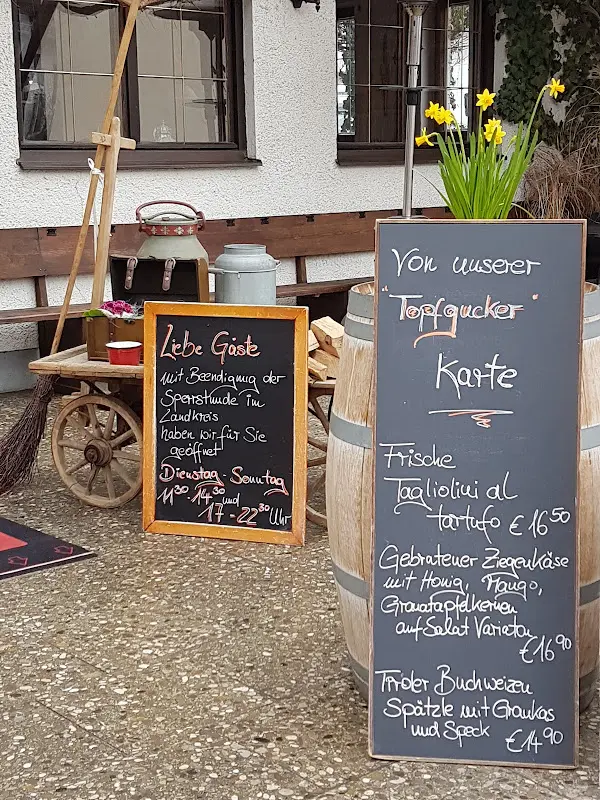 Liebe Gäste
mit Beendigung der
Sperrstunde im
Landkreis
haben wir für Sie
geöffnet
Dienstag - Sonntag
11³⁰ - 14³⁰ und
17 - 22³⁰ Uhr
Von unserer
"Topfgucker"
Karte
Frische
Tagliolini al
tartufo € 16⁵⁰
Gebratener Ziegenkäse
mit Honig, Mango,
Granatapfelkernen
auf Salat Variaton
€ 16⁹⁰
Tiroler Buchweizen
Spätzle mit Graukas
und Speck € 14⁹⁰